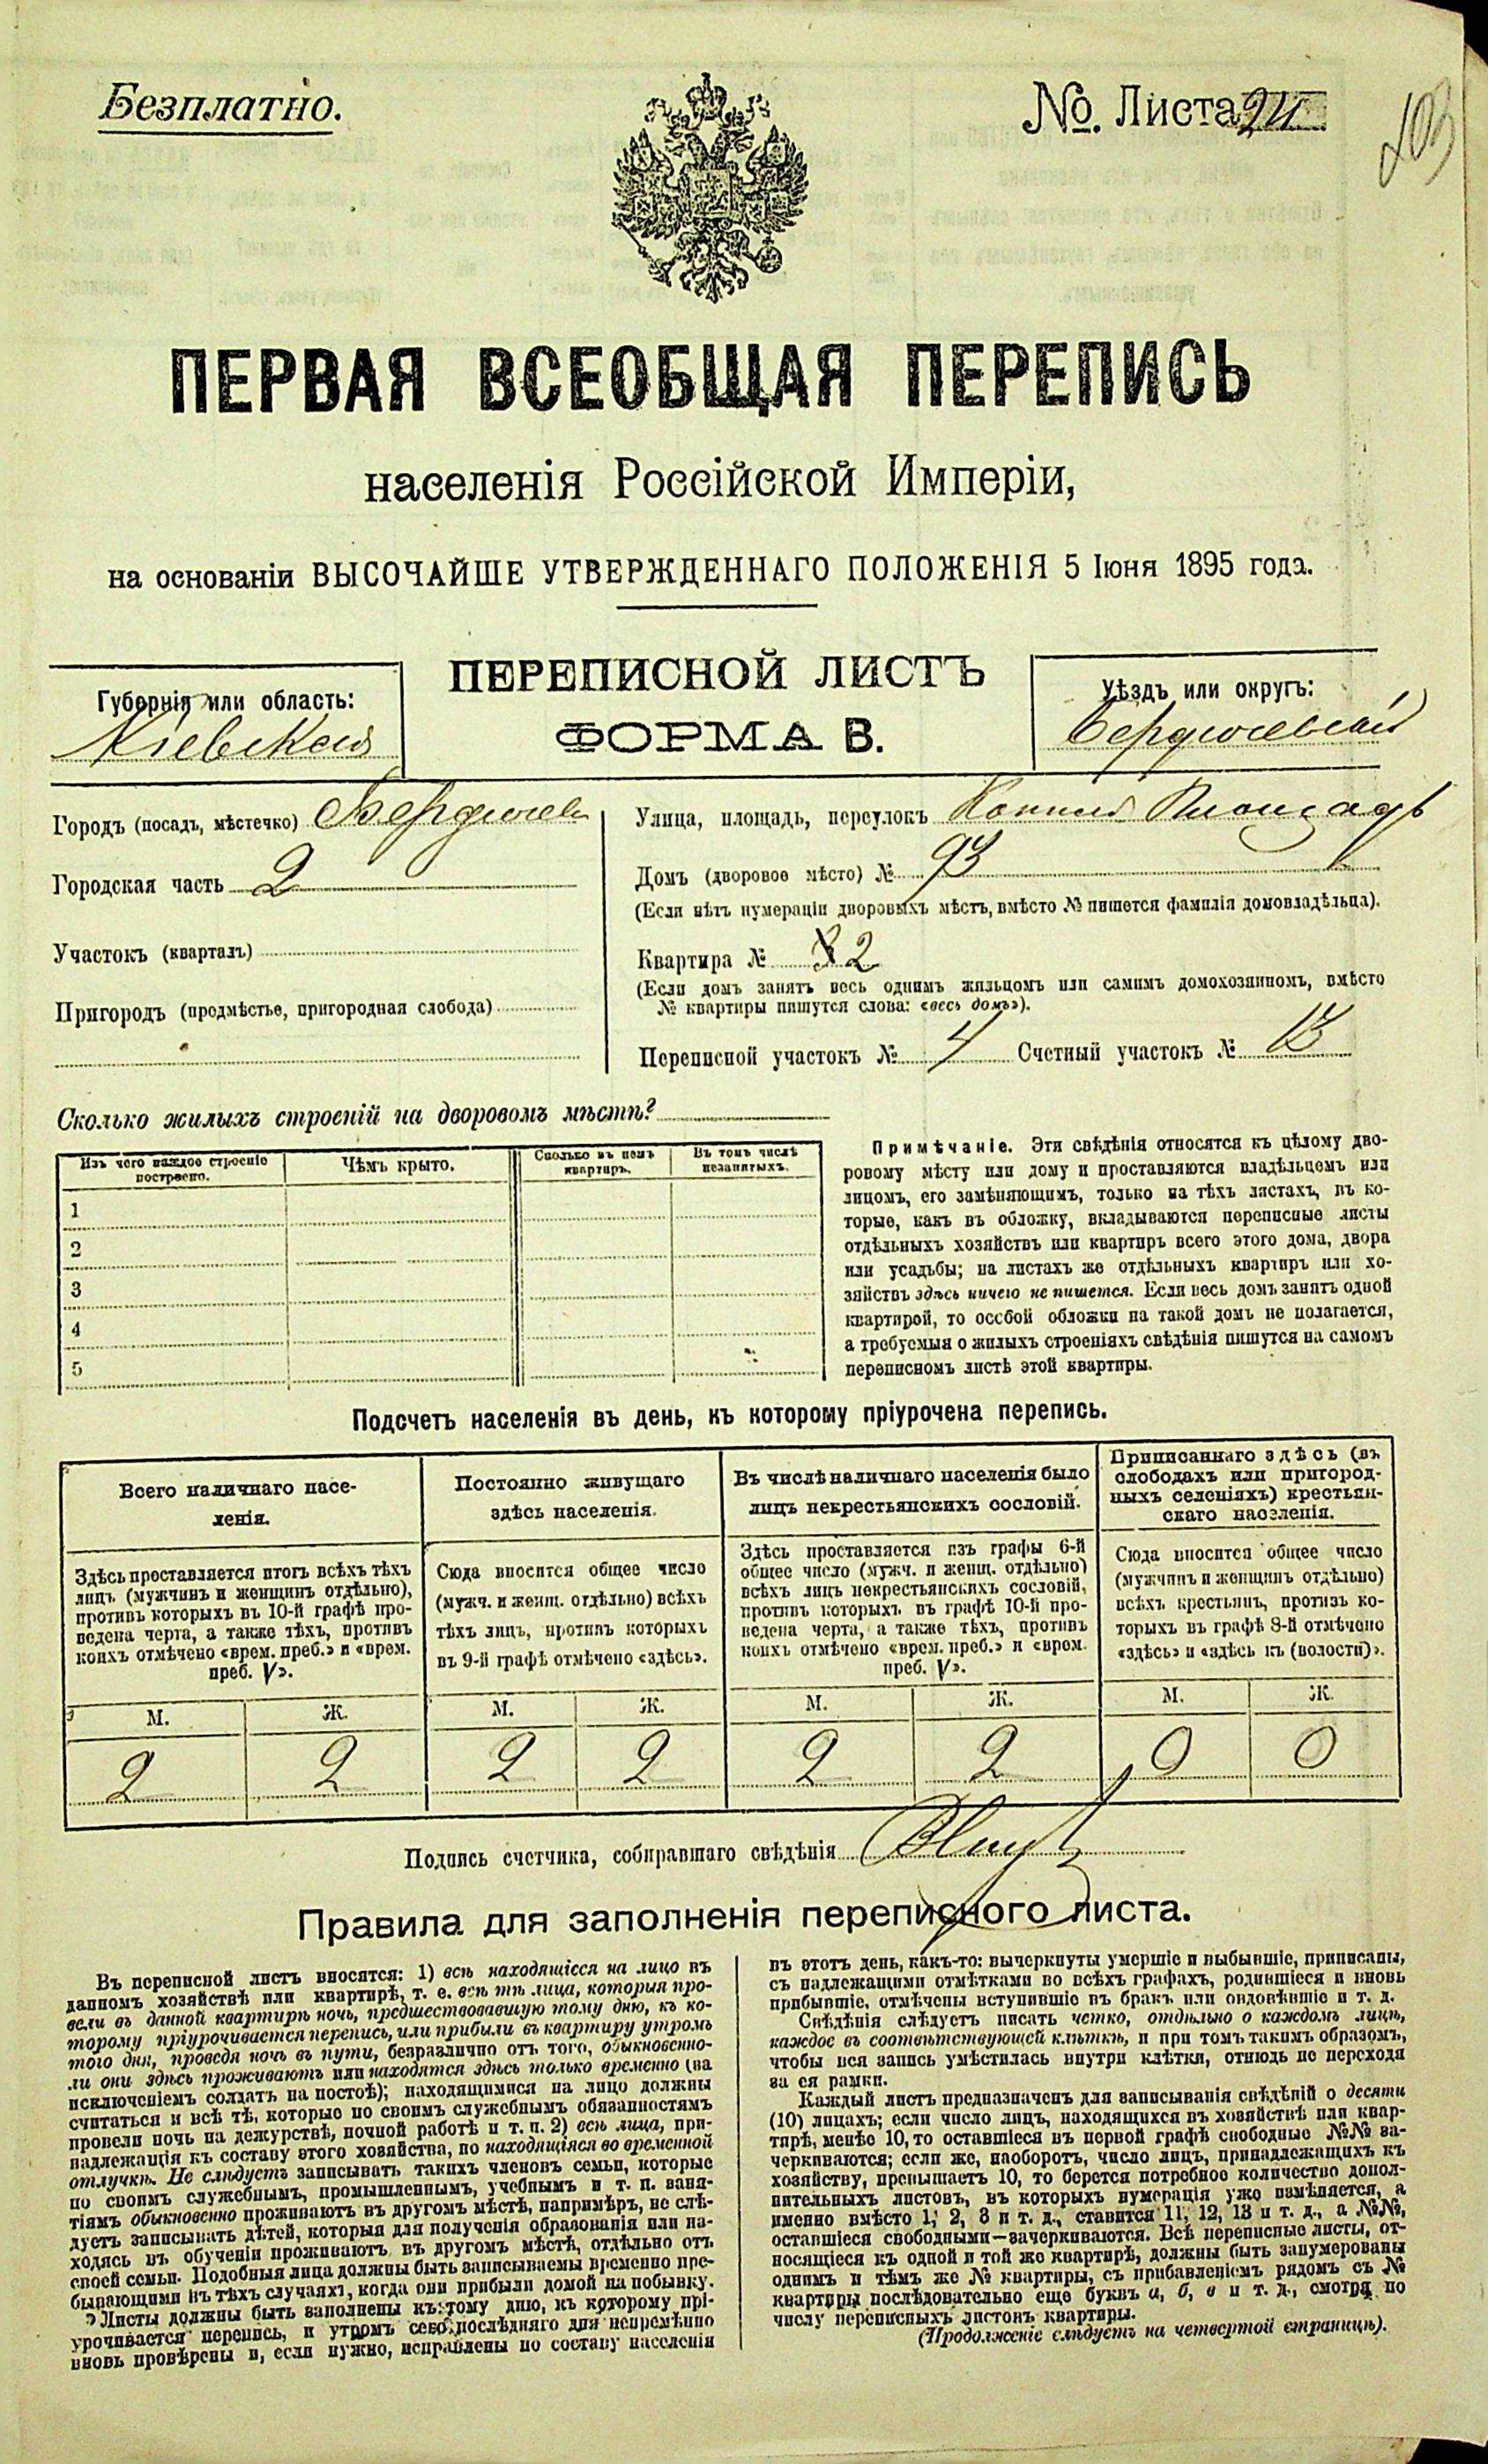 Безплатно.
№. Листа 24
103
ПЕРВАЯ ВСЕОБЩАЯ ПЕРЕПИСЬ
населенія Россійской Имперіи,
на основаніи ВЫСОЧАЙШЕ УТВЕРЖДЕННАГО ПОЛОЖЕНІЯ 5 Іюня 1895 года.
ПЕРЕПИСНОЙ ЛИСТЪ
ФОРМА В.
Губернія или область:
Кіевская
Уѣздъ или округъ:
Бердичевскій
Городъ (посадъ, мѣстечко) Бердичевъ
Городская часть 2
Участокъ (кварталъ)
Пригородъ (предмѣстье, пригородная слобода)
Улица, площадь, переулокъ Площадь
Домъ (дворовое мѣсто) № 93
(Если нѣтъ нумераціи дворовыхъ мѣстъ, вмѣсто № пишется фамилія домовладѣльца).
Квартира № 2
(Если домъ занятъ весь однимъ жильцомъ или самимъ домохозяиномъ, вмѣсто
№ квартиры пишутся слова: «весь домъ»).
Переписной участокъ № 4 Счетный участокъ № 13
Сколько жилыхъ строеній на дворовомъ мѣстѣ?
Изъ чего каждое строеніе построено.
Чѣмъ крыто.
Сколько въ немъ квартиръ.
Въ томъ числѣ незанятыхъ.
1
2
3
4
5
Примѣчаніе. Эти свѣдѣнія относятся къ цѣлому дво-
ровому мѣсту или дому и проставляются владѣльцемъ или
лицомъ, его замѣняющимъ, только на тѣхъ листахъ, въ ко-
торые, какъ въ обложку, вкладываются переписные листы
отдѣльныхъ хозяйствъ или квартиръ всего этого дома, двора
или усадьбы; на листахъ же отдѣльныхъ квартиръ или хо-
зяйствъ здѣсь ничего не пишется. Если весь домъ занятъ одной
квартирой, то особой обложки на такой домъ не полагается,
а требуемыя о жилыхъ строеніяхъ свѣдѣнія пишутся на самомъ
переписномъ листѣ этой квартиры.
Подсчетъ населенія въ день, къ которому пріурочена перепись.
Всего наличнаго насе-
ленія.
Здѣсь проставляется итогъ всѣхъ тѣхъ
лицъ (мужчинъ и женщинъ отдѣльно),
противъ которыхъ въ 10-й графѣ про-
ведена черта, а также тѣхъ, противъ
коихъ отмѣчено «врем. преб.» и «врем.
преб. V».
Постоянно живущаго
здѣсь населенія.
Сюда вносится общее число
(мужч. и женщ. отдѣльно) всѣхъ
тѣхъ лицъ, противъ которыхъ
въ 9-й графѣ отмѣчено «здѣсь».
Въ числѣ наличнаго населенія было
лицъ некрестьянскихъ сословій.
Здѣсь проставляется изъ графы 6-й
общее число (мужч. и женщ. отдѣльно)
всѣхъ лицъ некрестьянскихъ сословій,
противъ которыхъ въ графѣ 10-й про-
ведена черта, а также тѣхъ, противъ
коихъ отмѣчено «врем. преб.» и «врем.
преб. V».
Приписаннаго здѣсь (въ
слободахъ или пригород-
ныхъ селеніяхъ) крестьян-
скаго населенія.
Сюда вносится общее число
(мужчинъ и женщинъ отдѣльно)
всѣхъ крестьянъ, противъ ко-
торыхъ въ графѣ 8-й отмѣчено
«здѣсь» и «здѣсь къ (волости)».
М. Ж. М. Ж. М. Ж. М. Ж.
2 2 2 2 2 2 0 0
Подпись счетчика, собиравшаго свѣдѣнія
Правила для заполненія переписного листа.
Въ переписной листъ вносятся: 1) всѣ находящіеся на лицо въ
данномъ хозяйствѣ или квартирѣ, т. е. всѣ тѣ лица, которыя про-
вели въ данной квартирѣ ночь, предшествовавшую тому дню, къ ко-
торому пріурочивается перепись, или прибыли въ квартиру утромъ
того дня, проведя ночь въ пути, безразлично отъ того, обыкновенно-
ли они здѣсь проживаютъ или находятся здѣсь только временно (за
исключеніемъ солдатъ на постоѣ); находящимися на лицо должны
считаться и всѣ тѣ, которые по своимъ служебнымъ обязанностямъ
провели ночь на дежурствѣ, ночной работѣ и т. п. 2) всѣ лица, при-
надлежащія къ составу этого хозяйства, но находящіяся во временной
отлучкѣ. Не слѣдуетъ записывать такихъ членовъ семьи, которые
по своимъ служебнымъ, промышленнымъ, учебнымъ и т. п. заня-
тіямъ обыкновенно проживаютъ въ другомъ мѣстѣ, напримѣръ, не слѣ-
дуетъ записывать дѣтей, которыя для полученія образованія или на-
ходясь въ обученіи проживаютъ въ другомъ мѣстѣ, отдѣльно отъ
своей семьи. Подобныя лица должны быть записываемы временно пре-
бывающими въ тѣхъ случаяхъ, когда они прибыли домой на побывку.
Листы должны быть заполнены къ тому дню, къ которому прі-
урочивается перепись, и утромъ сего послѣдняго дня непремѣнно
вновь провѣрены и, если нужно, исправлены по составу населенія
въ этотъ день, какъ-то: вычеркнуты умершіе и выбывшіе, приписаны,
съ надлежащими отмѣтками во всѣхъ графахъ, родившіеся и вновь
прибывшіе, отмѣчены вступившіе въ бракъ или овдовѣвшіе и т. д.
Свѣдѣнія слѣдуетъ писать четко, отдѣльно о каждомъ лицѣ,
каждое въ соотвѣтствующей клѣткѣ, и при томъ такимъ образомъ,
чтобы вся запись умѣстилась внутри клѣтки, отнюдь не переходя
за ея рамки.
Каждый листъ предназначенъ для записыванія свѣдѣній о десяти
(10) лицахъ; если число лицъ, находящихся въ хозяйствѣ или квар-
тирѣ, менѣе 10, то оставшіеся въ первой графѣ свободные №№ за-
черкиваются; если же, наоборотъ, число лицъ, принадлежащихъ къ
хозяйству, превышаетъ 10, то берется потребное количество допол-
нительныхъ листовъ, въ которыхъ нумерація уже измѣняется, а
именно вмѣсто 1, 2, 3 и т. д., ставится 11, 12, 13 и т. д., а №№,
оставшіеся свободными—зачеркиваются. Всѣ переписные листы, от-
носящіеся къ одной и той же квартирѣ, должны быть занумерованы
однимъ и тѣмъ же № квартиры, съ прибавленіемъ рядомъ съ №
квартиры послѣдовательно еще буквъ а, б, в и т. д., смотря по
числу переписныхъ листовъ квартиры.
(Продолженіе слѣдуетъ на четвертой страницѣ).